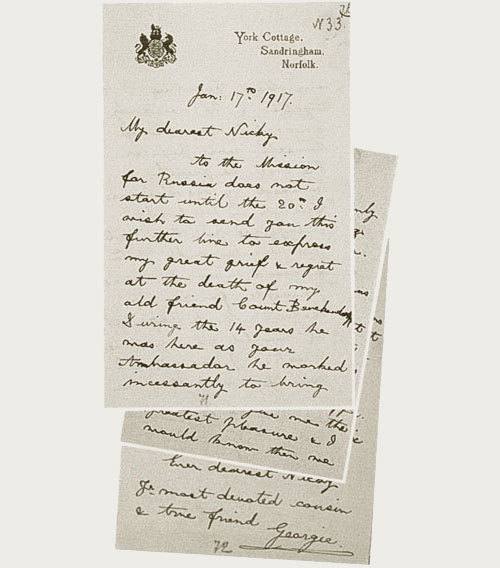 N 33.
York Cottage,
Sandringham,
Norfolk.
Jan: 17th 1917.
My dearest Nicky
As the Mission
for Russia does not
start until the 20th I
wish to send you this
further line to express
my great grief & regret
at the death of my
old friend Count Benckendorff
During the 14 years he
was here as your
Ambassador he worked
incessantly to bring
71
me the
greatest pleasure & I
would know then we
Ever dearest Nicky
Yr. most devoted cousin
& true friend Georgie.
72